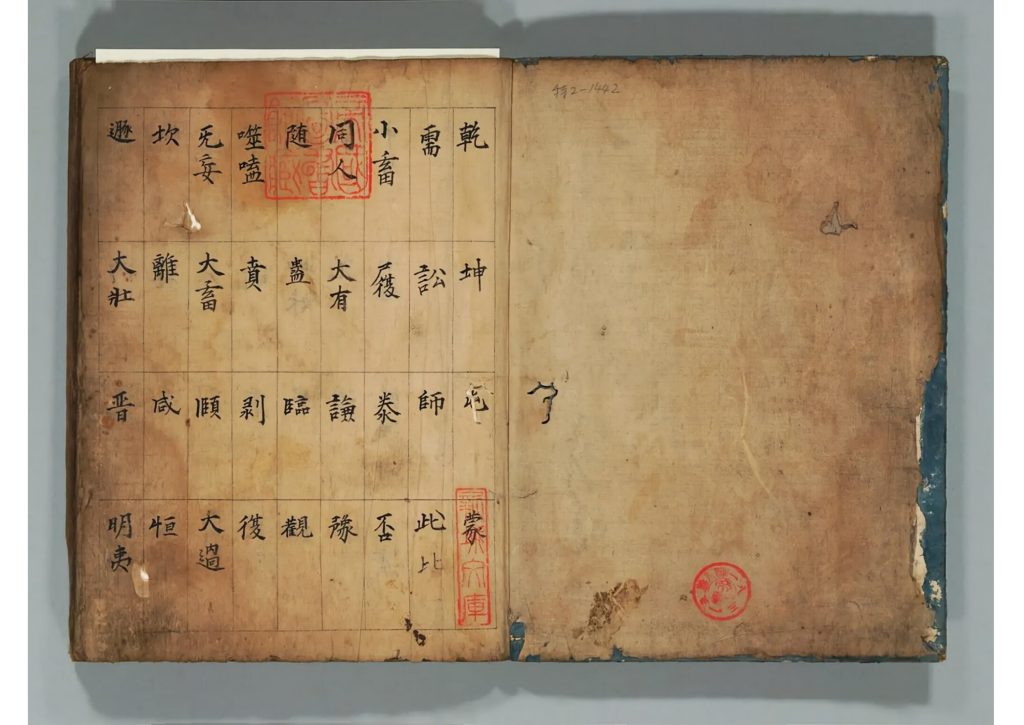 特2-1442
乾 坤 屯 蒙
需 訟 師 此 比
小畜 履 泰 否
同人 大有 謙 豫
随 蠱 臨 觀
噬嗑 賁 剥 復
无妄 大畜 頤 大過
坎 離 咸 恒
遯 大壯 晋 明夷